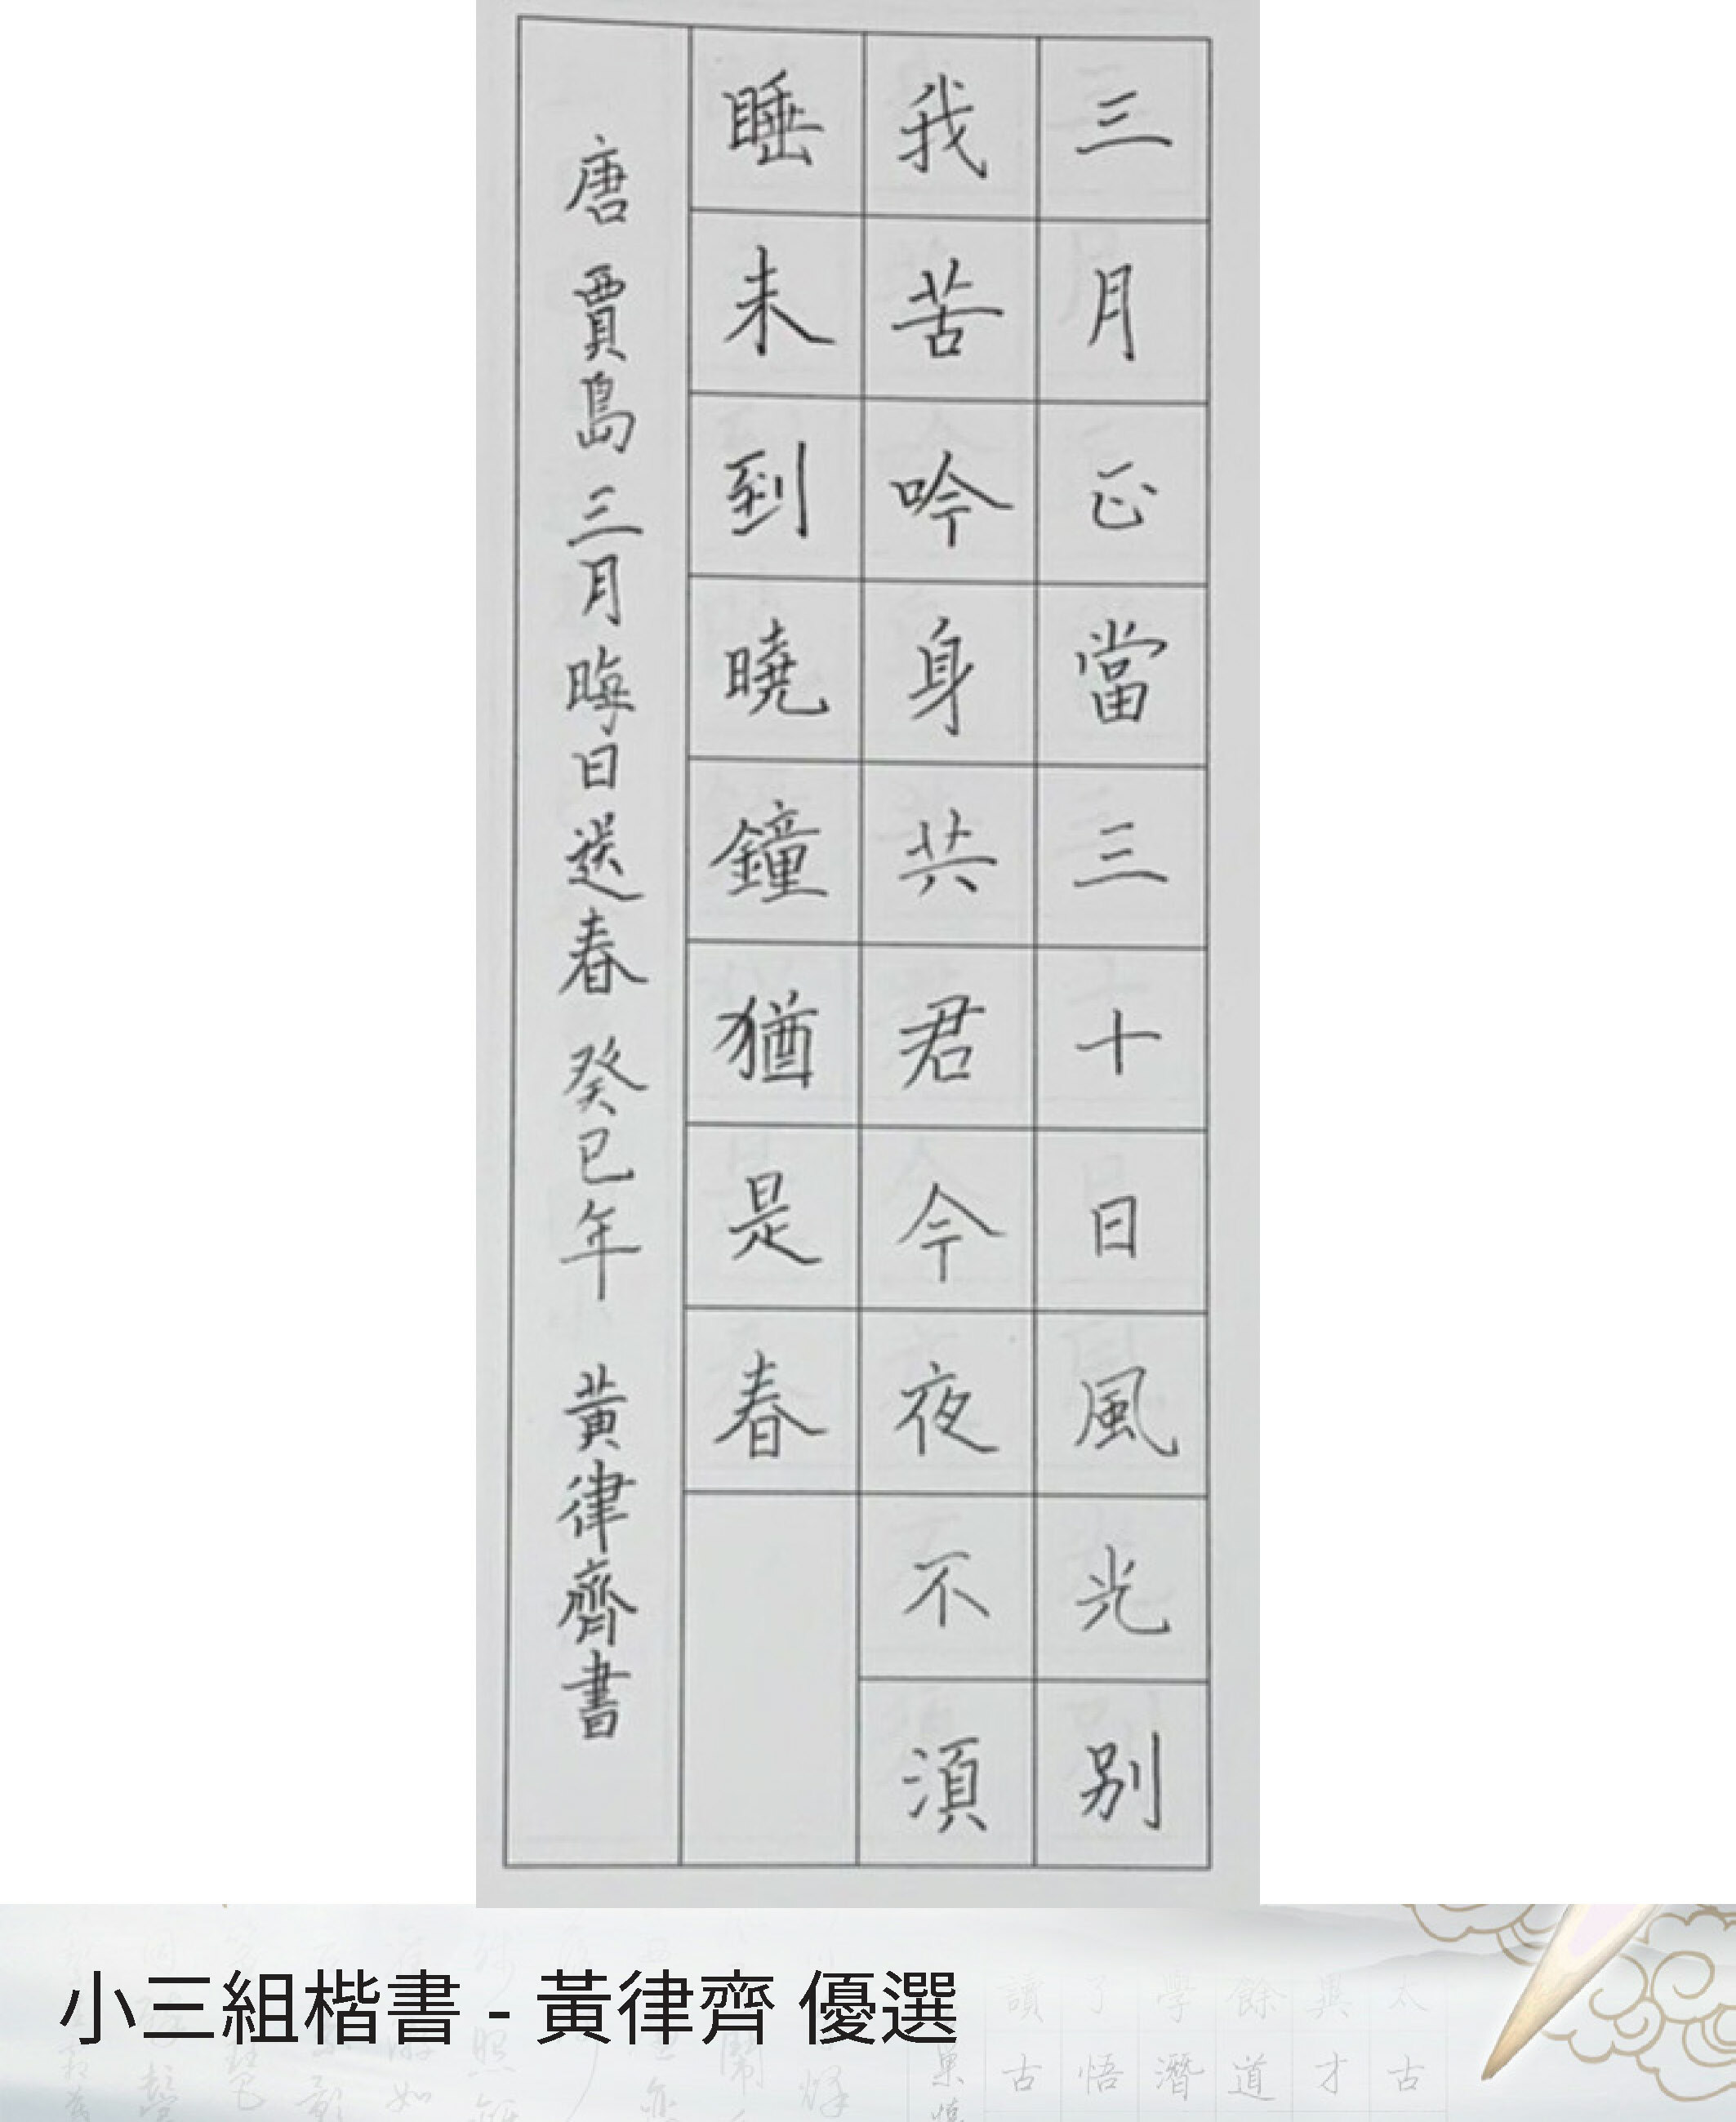 三月正當三十日風光别
我苦吟身共君今夜不湏
睡未到曉鐘猶是春
唐 賈島 三月晦日送春 癸巳年 黃律齊書
小三組楷書 - 黃律齊 優選
太古
與才
餘道
字潛
了悟
讀古